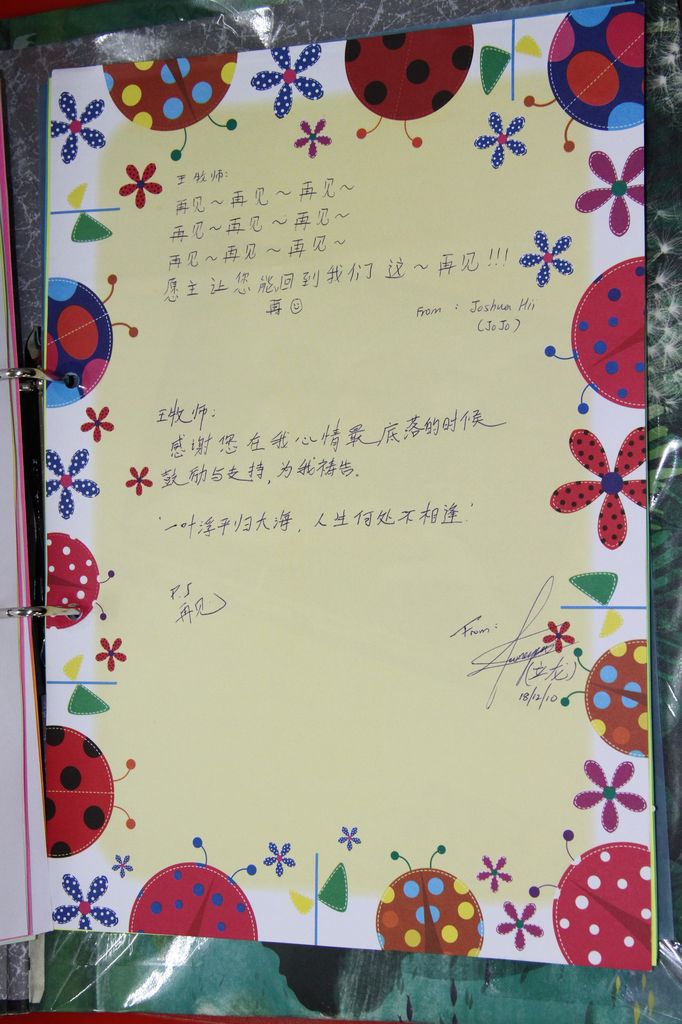 王牧师:
再见~再见~再见~
再见~再见~再见~
再见~再见~再见~
愿主让您能回到我们这~再见!!!
再☺
From : Joshua Hii
(JoJo)
王牧师:
感谢您在我心情最底落的时候
鼓励与支持,为我祷告.
'一叶浮平归大海,人生何处不相逢.'
P.S
再见
From:
(立龙)
18/12/10